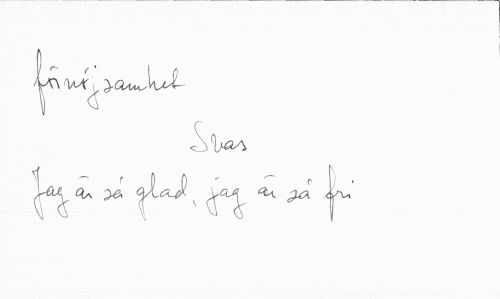 förnöjsamhet
Svas
Jag är så glad, jag är så fri